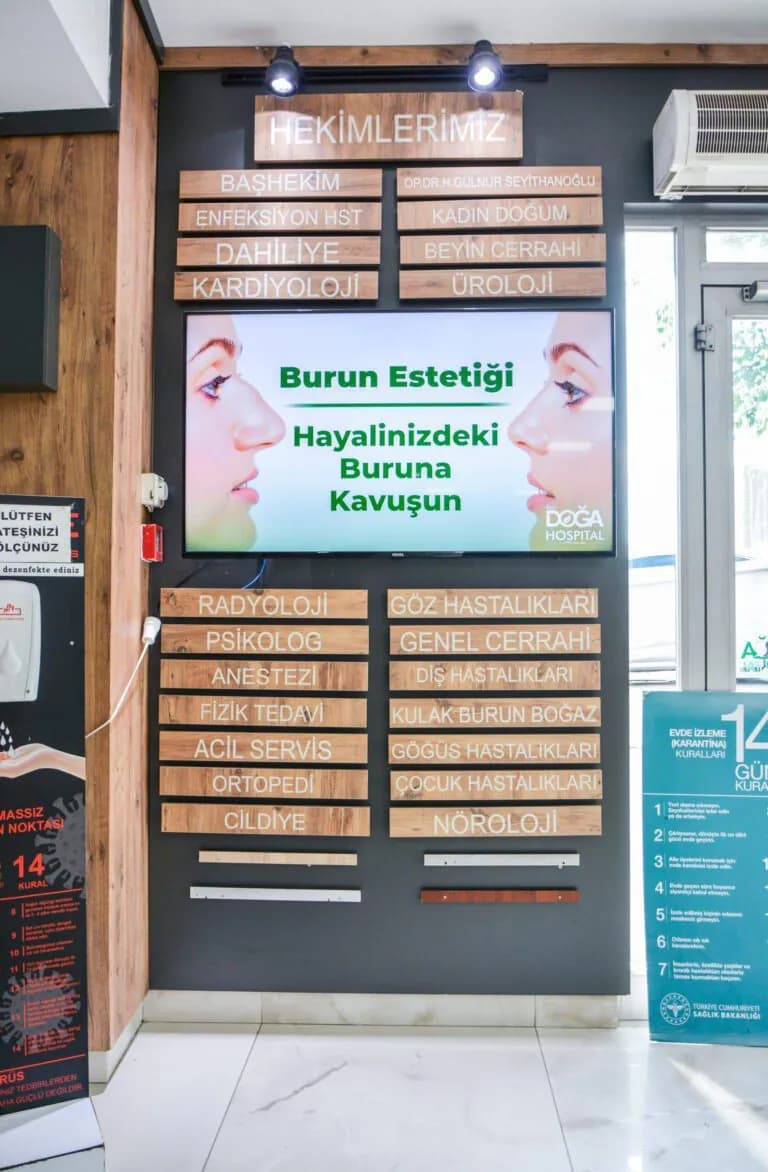 HEKİMLERİMİZ
BAŞHEKİM
OP.DR.H.GÜLNUR SEYİTHANOĞLU
ENFEKSİYON HST
KADIN DOĞUM
DAHİLİYE
BEYİN CERRAHİ
KARDİYOLOJİ
ÜROLOJİ
Burun Estetiği
Hayalinizdeki
Buruna
Kavuşun
DOĞA
HOSPITAL
RADYOLOJİ
GÖZ HASTALIKLARI
PSİKOLOG
GENEL CERRAHİ
ANESTEZİ
DİŞ HASTALIKLARI
FİZİK TEDAVİ
KULAK BURUN BOĞAZ
ACİL SERVİS
GÖĞÜS HASTALIKLARI
ORTOPEDİ
ÇOCUK HASTALIKLARI
CİLDİYE
NÖROLOJİ
LÜTFEN
ATEŞİNİZİ
ÖLÇÜNÜZ
dezenfekte ediniz
MASSIZ
N NOKTASI
14
KURAL
8
9
10
11
14
RÜS
TEDBİRLERDEN
AHA GÜÇLÜ DEĞİLDİR
EVDE İZLEME
(KARANTİNA)
KURALLARI
14
GÜN
KURA
1
2
3
4
5
6
7
TÜRKİYE CUMHURİYETİ
SAĞLIK BAKANLIĞI